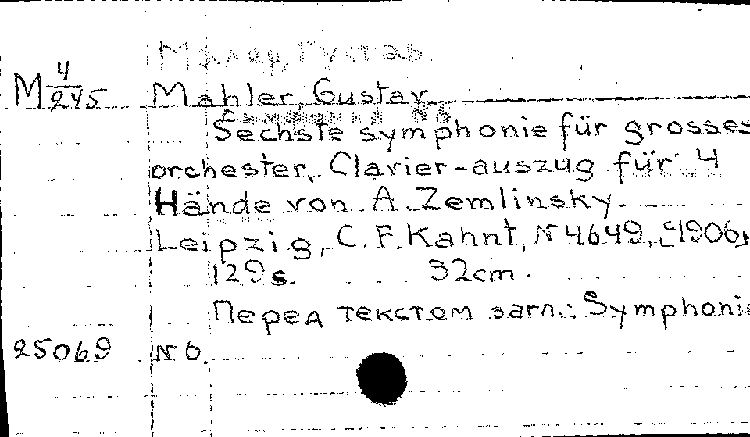 Малер, Густав.
М 4/245
Mahler, Gustav
Симфония № 6
Sechste symphonie für grosses
orchester. Clavier-auszug für 4
Hände von A. Zemlinsky.
Leipzig, C. F. Kahnt, № 4649, c1906,
129 s. 32 cm.
Перед текстом загл.: Symphonie
25069 № 6.